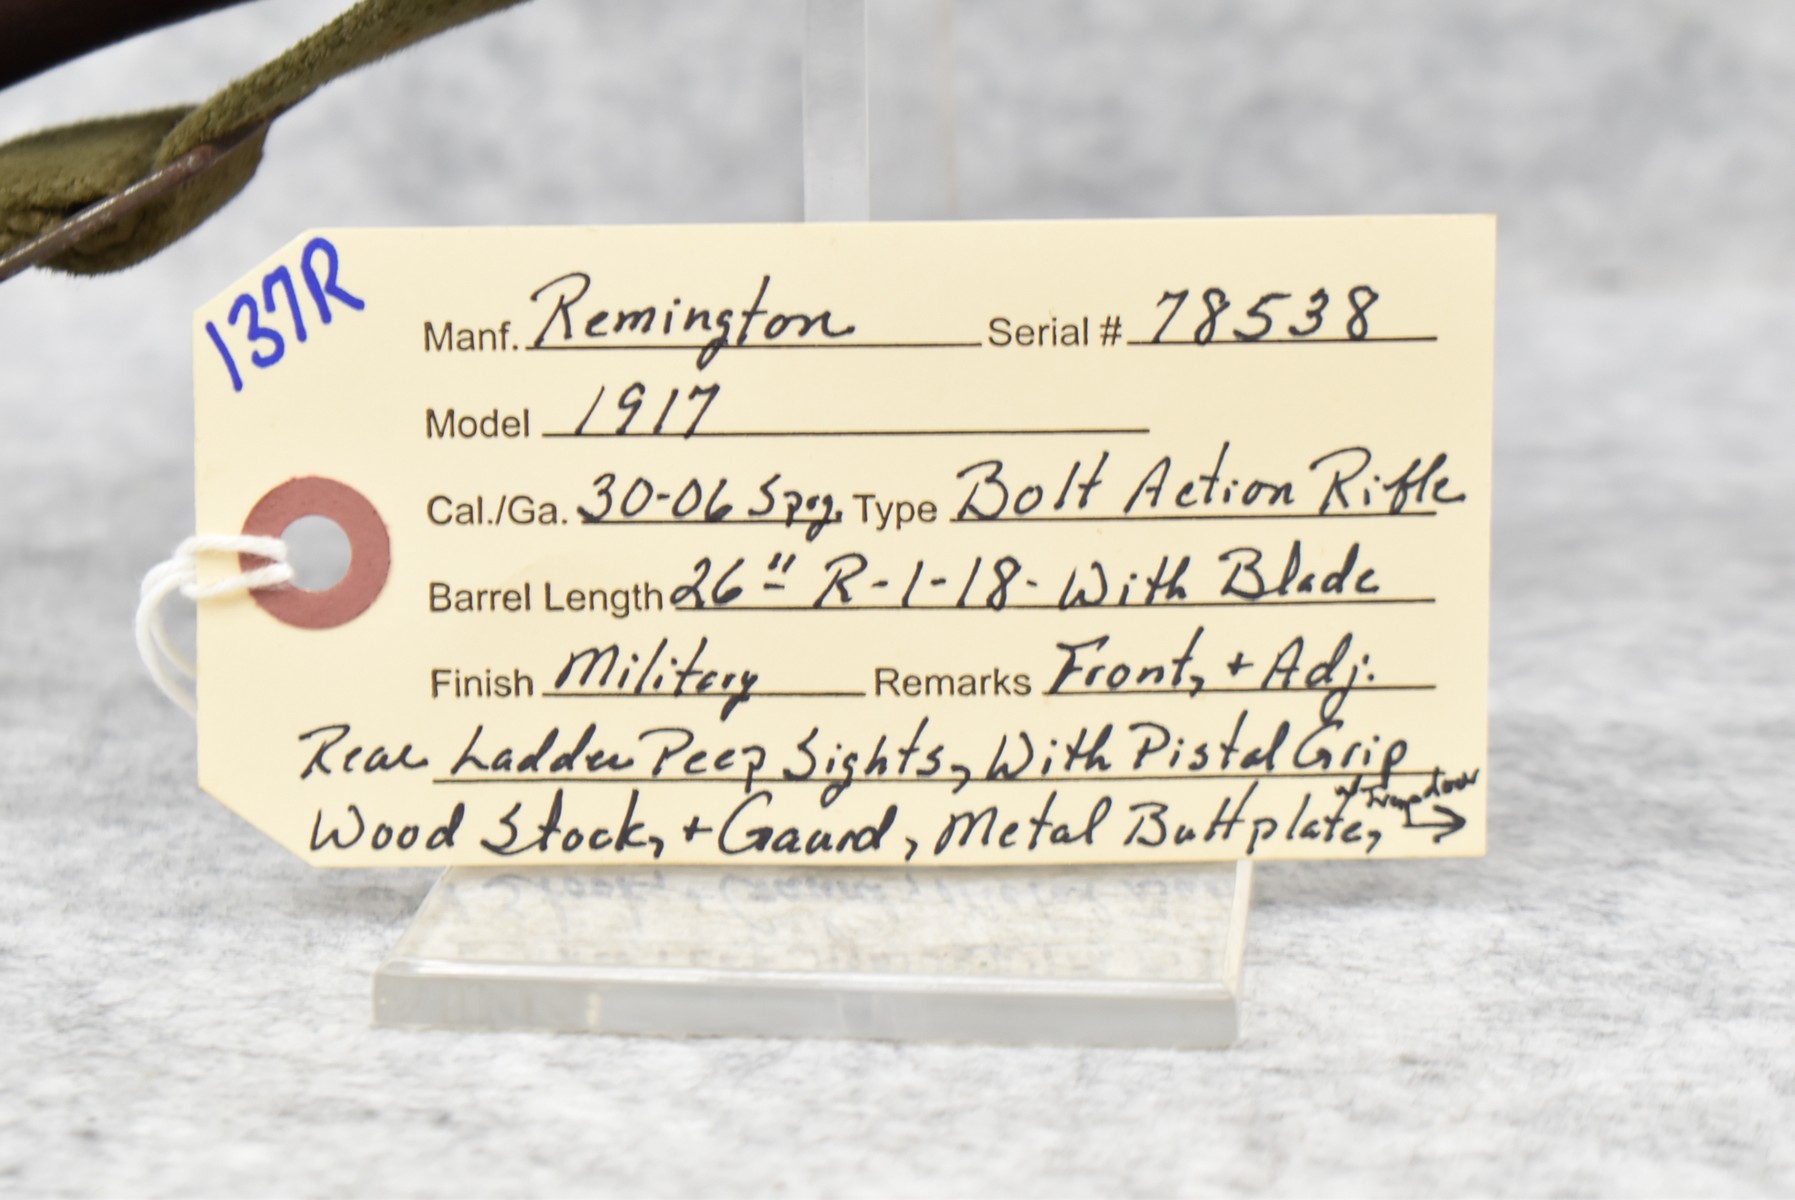 137R
Manf. Remington Serial # 78538
Model 1917
Cal./Ga. 30-06 Spg. Type Bolt Action Rifle
Barrel Length 26" R-1-18- With Blade
Finish Military Remarks Front, + Adj.
Rear Ladder Peep Sights, With Pistal Grip
w/ Trapdoor
Wood Stock, + Gaurd, Metal Buttplate, →